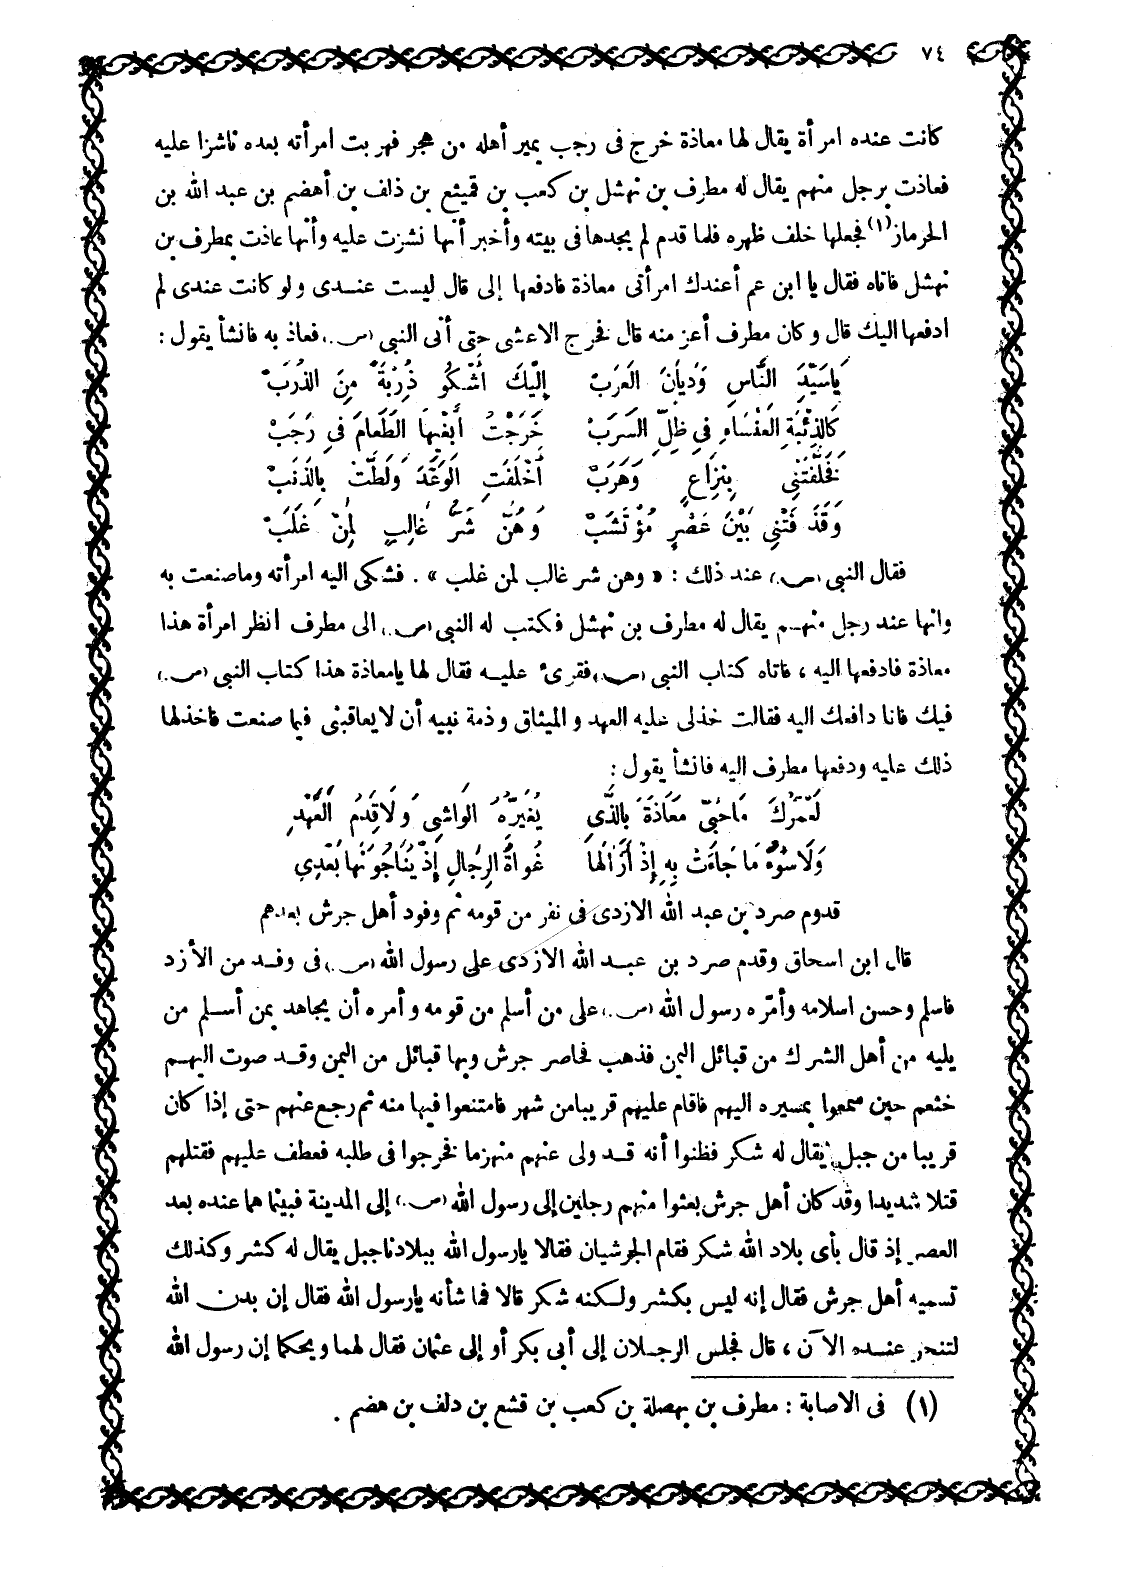 ٧٤
كانت عنده امرأة يقال لها معاذة خرج فى رجب يمير أهله من هجر فهربت امرأته بعده ناشزا عليه
فعاذت برجل منهم يقال له مطرف بن نهشل بن كعب بن قميثع بن ذلف بن أهضم بن عبد الله بن
الحرماز(١) فجعلها خلف ظهره فلما قدم لم يجدها فى بيته وأخبر أنها نشزت عليه وأنها عاذت بمطرف بن
نهشل فاتاه فقال يا ابن عم أعندك امرأتى معاذة فادفعها إلى قال ليست عندى ولو كانت عندى لم
ادفعها اليك قال وكان مطرف أعز منه قال فخرج الاعشى حتى أتى النبى (ص) فعاذ به فانشأ يقول :
يَاسَيِّدِ النَّاسِ وَدَيَانَ العَرَبْ إِلَيْكَ أَشْكُو ذُرْبَةً مِنَ الذُرَبْ
كَالذِئْبَةِ العَفْسَاءِ فِي ظِلِّ السَرَبْ خَرَجْتُ أَبْغِيهَا الطَعَامَ فِي رَجَبْ
فَخَلَّفَتْنِي بِنِزَاعٍ وَهَرَبْ أَخْلَفَتِ الوَعْدَ وَلَطَّتْ بِالذَنَبْ
وَقَذَفَتْنِي بَيْنَ عَصْرٍ مُؤْتَشَبْ وَهُنَّ شَرُّ غَالِبٍ لِمَنْ غَلَبْ
فقال النبى (ص) عند ذلك : « وهن شر غالب لمن غلب » . فشكى اليه امرأته وماصنعت به
وانها عند رجل منهم يقال له مطرف بن نهشل فكتب له النبى (ص) الى مطرف انظر امرأة هذا
معاذة فادفعها اليه ، فاتاه كتاب النبى (ص) فقرئ عليه فقال لها يامعاذة هذا كتاب النبى (ص)
فيك فانا دافعك اليه فقالت خذلى عليه العهد والميثاق وذمة نبيه أن لا يعاقبنى فيما صنعت فاخذلها
ذلك عليه ودفعها مطرف اليه فانشأ يقول :
لَعَمْرُكَ مَاحُبِّي مَعَاذَةَ بِالذَّى يُغَيِّرُهُ الوَاشِى وَلَاقِدَمُ العَهْدِ
وَلَاسُوْءُ مَا جَاءَتْ بِهِ إِذْ أَزَالَهَا غُوَاةُ الرِجَالِ إِذْ يُنَاجُونَهَا بَعْدِي
قدوم صرد بن عبد الله الازدى فى نفر من قومه ثم وفود أهل جرش بعدهم
قال ابن اسحاق وقدم صرد بن عبد الله الازدى على رسول الله (ص) فى وفد من الأزد
فاسلم وحسن اسلامه وأمّره رسول الله (ص) على من أسلم من قومه وأمره أن يجاهد بمن أسلم من
يليه من أهل الشرك من قبائل اليمن فذهب فحاصر جرش وبها قبائل من اليمن وقد صوت اليهم
خثعم حين سمعوا بمسيره اليهم فاقام عليهم قريبا من شهر فامتنعوا فيها منه ثم رجع عنهم حتى إذا كان
قريبا من جبل يقال له شكر فظنوا أنه قد ولى عنهم منهزما فخرجوا فى طلبه فعطف عليهم فقتلهم
قتلا شديدا وقد كان أهل جرش بعثوا منهم رجلين إلى رسول الله (ص) إلى المدينة فبينما هما عنده بعد
العصر إذ قال بأى بلاد الله شكر فقام الجرشيان فقالا يارسول الله ببلادنا جبل يقال له كشر وكذلك
تسميه أهل جرش فقال إنه ليس بكشر ولكنه شكر قالا فما شأنه يارسول الله فقال إن بدن الله
لتنحر عنده الآن ، قال فجلس الرجلان إلى أبى بكر أو إلى عثمان فقال لهما ويحكما إن رسول الله
(١) فى الاصابة : مطرف بن بهصلة بن كعب بن قشع بن دلف بن هضم .